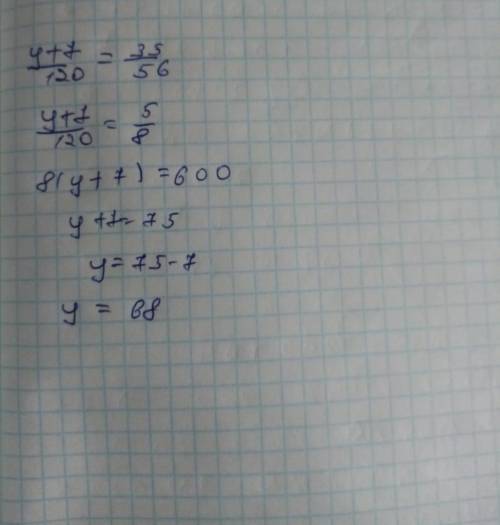 y+7/120 = 35/56
y+7/120 = 5/8
8(y+7)=600
y+7=75
y=75-7
y = 68